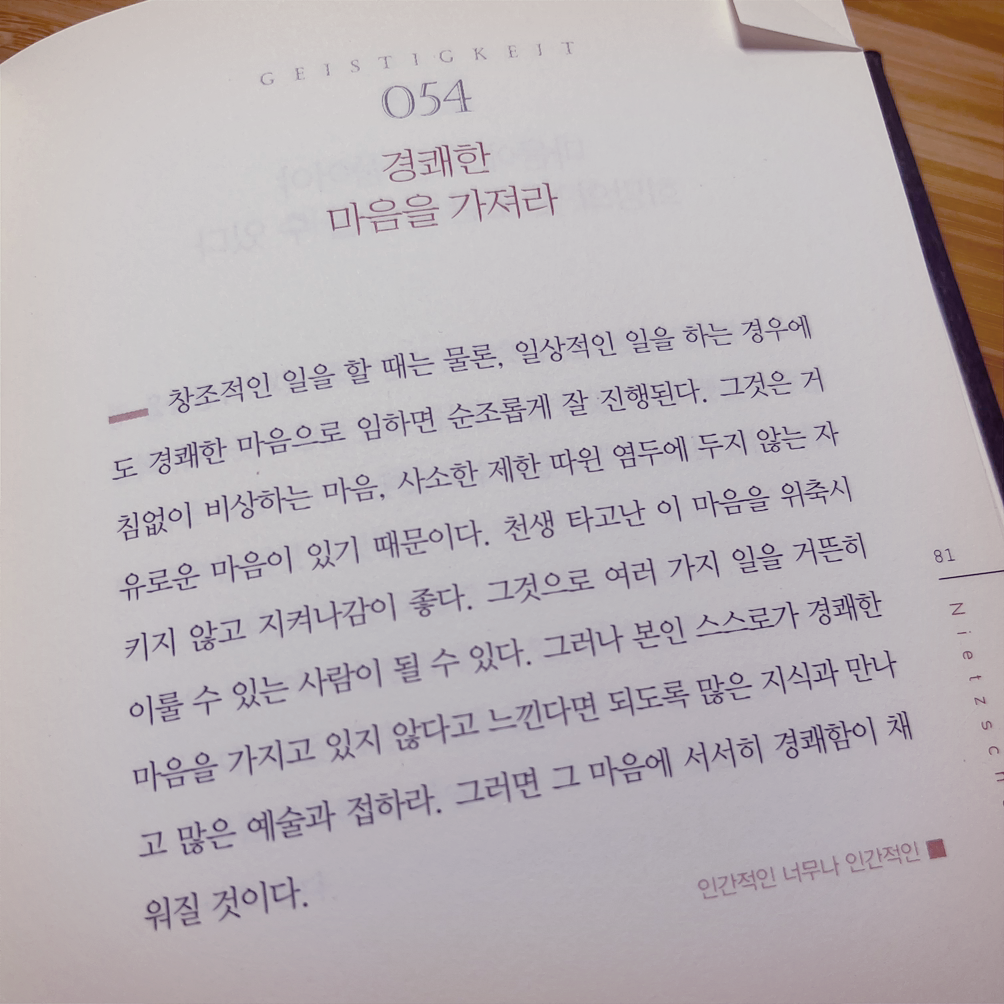 GEISTIGKEIT
054
경쾌한
마음을 가져라
창조적인 일을 할 때는 물론, 일상적인 일을 하는 경우에
도 경쾌한 마음으로 임하면 순조롭게 잘 진행된다. 그것은 거
침없이 비상하는 마음, 사소한 제한 따윈 염두에 두지 않는 자
유로운 마음이 있기 때문이다. 천생 타고난 이 마음을 위축시
키지 않고 지켜나감이 좋다. 그것으로 여러 가지 일을 거뜬히
이룰 수 있는 사람이 될 수 있다. 그러나 본인 스스로가 경쾌한
마음을 가지고 있지 않다고 느낀다면 되도록 많은 지식과 만나
고 많은 예술과 접하라. 그러면 그 마음에 서서히 경쾌함이 채
워질 것이다.
인간적인 너무나 인간적인
81